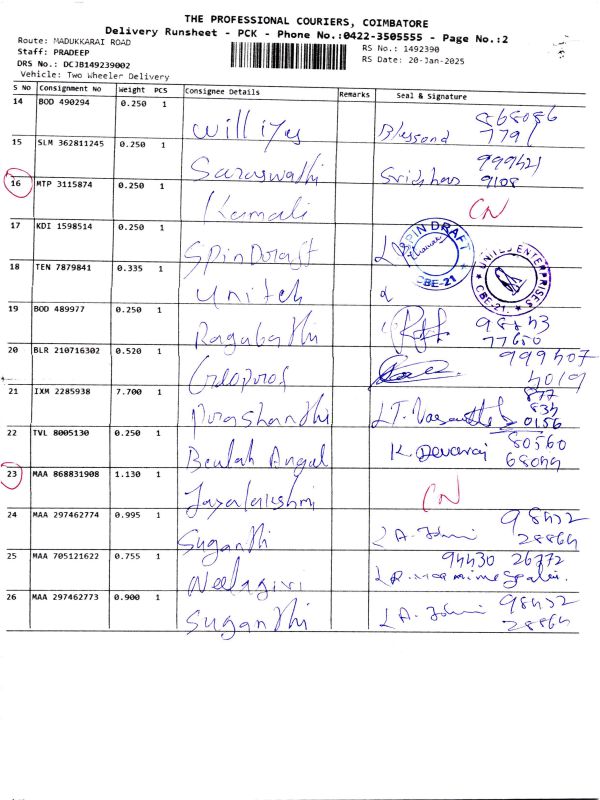 THE PROFESSIONAL COURIERS, COIMBATORE
Delivery Runsheet - PCK - Phone No.:0422-3505555 - Page No.:2
Route: MADUKKARAI ROAD
RS No.: 1492390
Staff: PRADEEP
RS Date: 20-Jan-2025
DRS No.: DCJB149239002
Vehicle: Two Wheeler Delivery
S No Consignment No Weight PCS Consignee Details Remarks Seal & Signature
14 BOD 490294 0.250 1 williyes Blessond 868086 7791
15 SLM 362811245 0.250 1 Saraswathi Sridhar 999421 9108
16 MTP 3115874 0.250 1 Kamali CN
17 KDI 1598514 0.250 1 SpinDraft SPIN DRAFT CBE-21
18 TEN 7879841 0.335 1 Unitech UNITED ENTERPRISES CBE-21.
19 BOD 489977 0.250 1 Ragabathi 98843 77650
20 BLR 210716302 0.520 1 999407 4019
21 IXM 2285938 7.700 1 Prashanthi 877 834 0156
22 TVL 8005130 0.250 1 Beulah Angal K. Devaraj 80560 68044
23 MAA 868831908 1.130 1 Jayalakshmi CN
24 MAA 297462774 0.995 1 Suganthi 98432 28864
25 MAA 705121622 0.755 1 Neelagiri 94430 26772
26 MAA 297462773 0.900 1 Suganthi 98432 28864